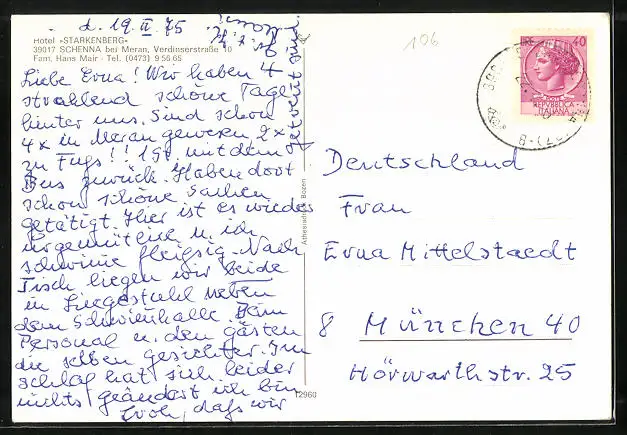 d. 19. IX. 75
Hotel »STARKENBERG«
39017 SCHENNA bei Meran, Verdinserstraße 10
Fam. Hans Mair - Tel. (0473) 9 56 65
Liebe Erna! Wir haben 4
strahlend schöne Tage
hinter uns. Sind schon
4x in Meran gewesen 2x
zu Fuß!! 1x mit dem
Bus zurück. Haben dort
schon schöne Sachen
getätigt. Hier ist es wieder
urgemütlich u. ich
schwimme fleißig. Nach
Tisch liegen wir beide
in Liegestuhl neben
dem Schwimmhalle. Beim
Personal u. den Gästen
die selben Gesichter. Im
Schlaf hat sich leider
nichts geändert ich bin
froh, daß wir
106
40
REPUBBLICA
ITALIANA
Deutschland
Frau
Erna Mittelstaedt
8 München 40
Hörwarthstr. 25
12960